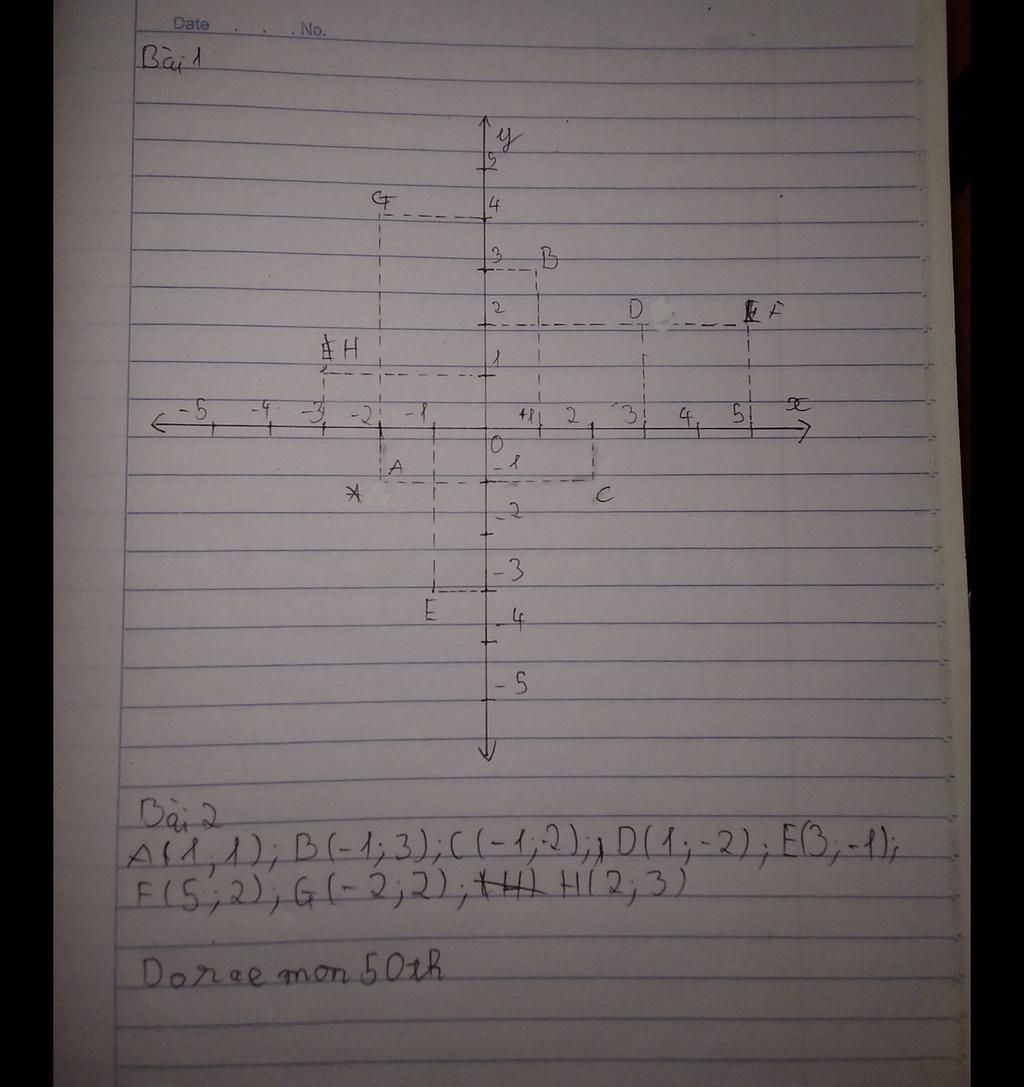 Date . . . No.
Bài 1
y
5
G
4
3
B
2
D
F
H
1
-5 -4 -3 -2 -1 +1 2 3 4 5 x
O
A
-1
C
-2
-3
E
-4
-5
Bài 2
A(1;1); B(-1;3); C(-1;-2); D(1;-2); E(3;-1);
F(5;2); G(-2;2); H(2;3)
Doraemon 50th